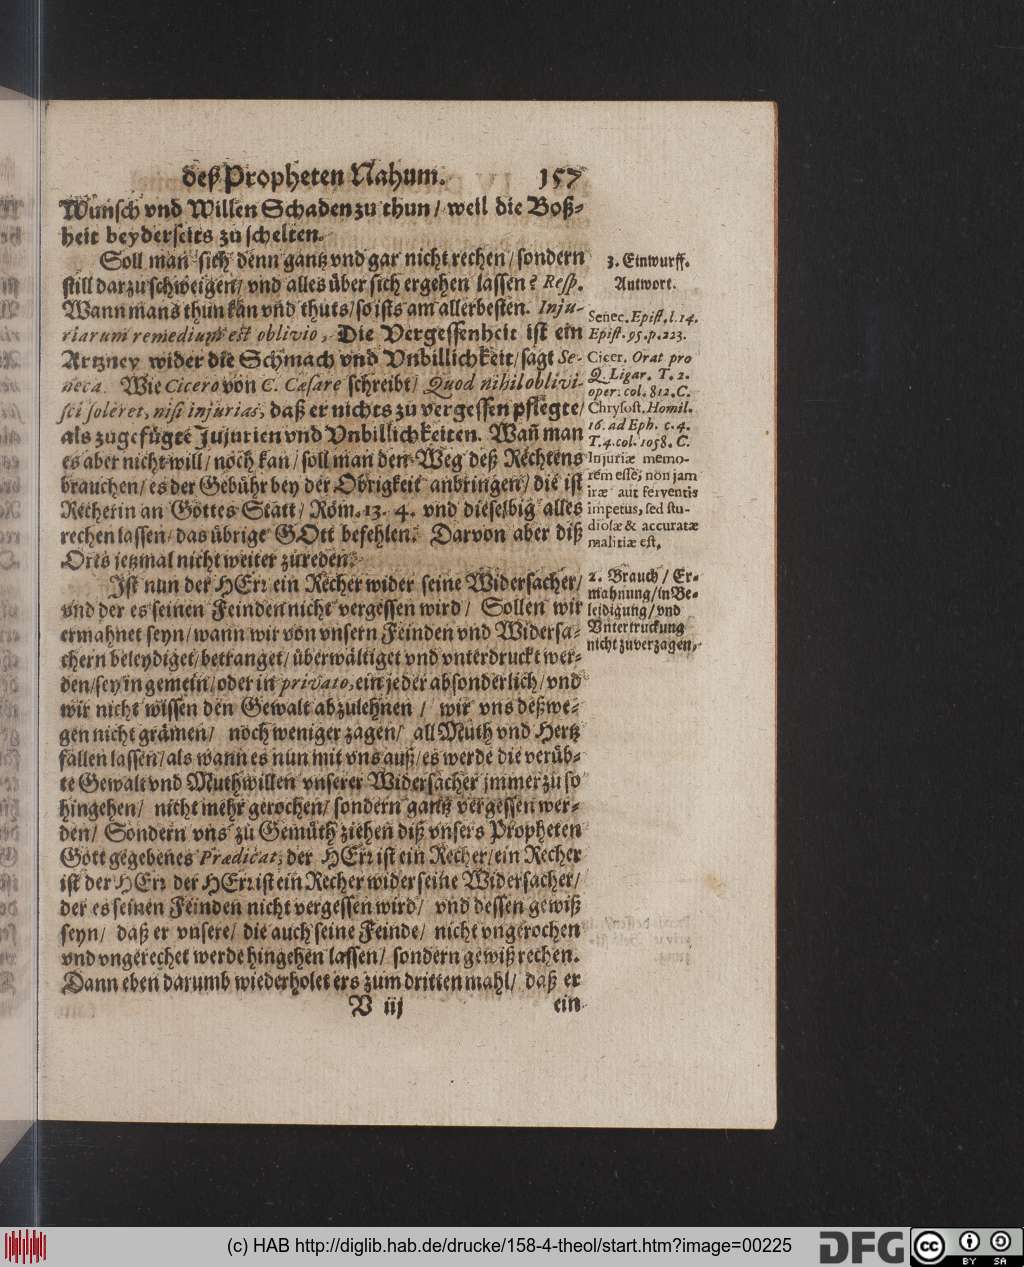 deß Propheten Nahum. 157
Wunsch vnd Willen Schaden zu thun / weil die Boß⸗
heit beyderseits zu schelten.
Soll man sich denn gantz vnd gar nicht rechen / sondern
still darzu schweigen / vnd alles über sich ergehen lassen? Resp.
Wann mans thun kan vnd thuts / so ists am allerbesten. Inju-
riarum remedium est oblivio, Die Vergessenheit ist ein
Artzney wider die Schmach vnd Vnbillichkeit / sagt Se-
neca. Wie Cicero von C. Cæsare schreibt / Quod nihil oblivi-
sci soleret, nisi injurias, daß er nichts zu vergessen pflegte /
als zugefügte Jujurien vnd Vnbillichkeiten. Wañ man
es aber nicht will / noch kan / soll man den Weg deß Rechtens
brauchen / es der Gebühr bey der Obrigkeit anbringen / die ist
Recherin an Gottes Statt / Röm. 13. 4. vnd dieselbig alles
rechen lassen / das übrige GOtt befehlen. Darvon aber diß
Orts jetzmal nicht weiter zureden.
Ist nun der HErr ein Recher wider seine Widersacher /
vnd der es seinen Feinden nicht vergessen wird / Sollen wir
ermahnet seyn / wann wir von vnsern Feinden vnd Widersa⸗
chern beleydiget / betranget / überwältiget vnd vnterdruckt wer⸗
den / sey in gemein / oder in privato, ein jeder absonderlich / vnd
wir nicht wissen den Gewalt abzulehnen / wir vns deßwe⸗
gen nicht grämen / noch weniger zagen / all Muth vnd Hertz
fallen lassen / als wann es nun mit vns auß / es werde die verüb⸗
te Gewalt vnd Muthwillen vnserer Widersacher jmmerzu so
hingehen / nicht mehr gerochen / sondern gantz vergessen wer⸗
den / Sondern vns zu Gemüth ziehen diß vnsers Propheten
Gott gegebenes Prædicat, der HErr ist ein Recher / ein Recher
ist der HErr der HErr ist ein Recher wider seine Widersacher /
der es seinen Feinden nicht vergessen wird / vnd dessen gewiß
seyn / daß er vnsere / die auch seine Feinde / nicht vngerochen
vnd vngerechet werde hingehen lassen / sondern gewiß rechen.
Dann eben darumb wiederholet ers zum dritten mahl / daß er
V iij ein
3. Einwurff.
Antwort.
Senec. Epist. l. 14.
Epist. 95. p. 223.
Cicer. Orat pro
Q. Ligar. T. 2.
oper. col. 812. C.
Chrysost. Homil.
16. ad Eph. c. 4.
T. 4. col. 1058. C.
Injuriæ memo-
rem esse, non jam
iræ aut ferventis
impetus, sed stu-
diosæ & accuratæ
malitiæ est.
2. Brauch / Er⸗
mahnung / in Be⸗
leidigung / vnd
Vntertruckung
nicht zuverzagen.
(c) HAB http://diglib.hab.de/drucke/158-4-theol/start.htm?image=00225
DFG
cc BY SA